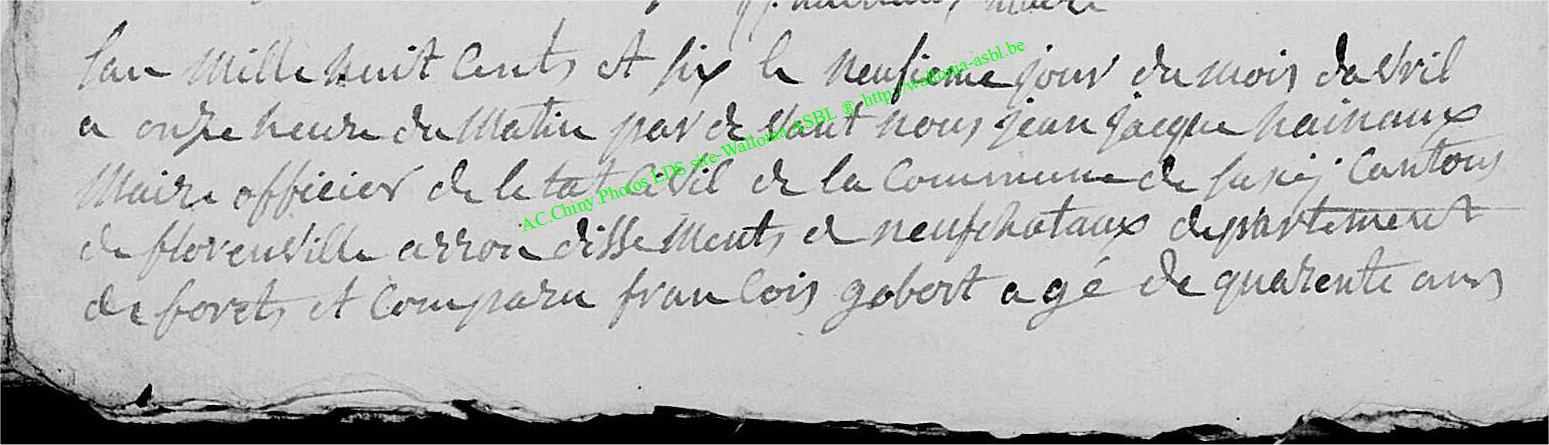 maire
lan Mille huit Cents et six le neufieme jour du mois davril
a onze heure du Matin par de vant nous jean jacque hainaux
Maire officier de letat Civil de la Commune de Cantons
de florenville arron disse Ments de neufchataux departement
de forets et Comparu fran Cois gobert agé de quarente ans
AC Chiny Photos LDS site-Wallonia ASBL ® http://wallonia-asbl.be